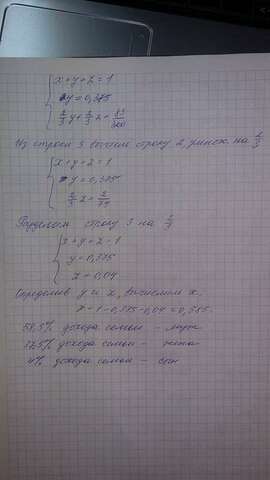 x+y+z=1
y=0,375
2/3 y + 2/3 z =
Из строки 3 вычтем строку 2, умнож. на 2/3
x+y+z=1
y=0,375
2/3 z =
Разделим строку 3 на 2/3
x+y+z=1
y=0,375
z=0,04
Определив y и z, вычислим x.
x=1-0,375-0,04=0,585.
58,5% дохода семьи - муж
37,5% дохода семьи - жена
4% дохода семьи - сын